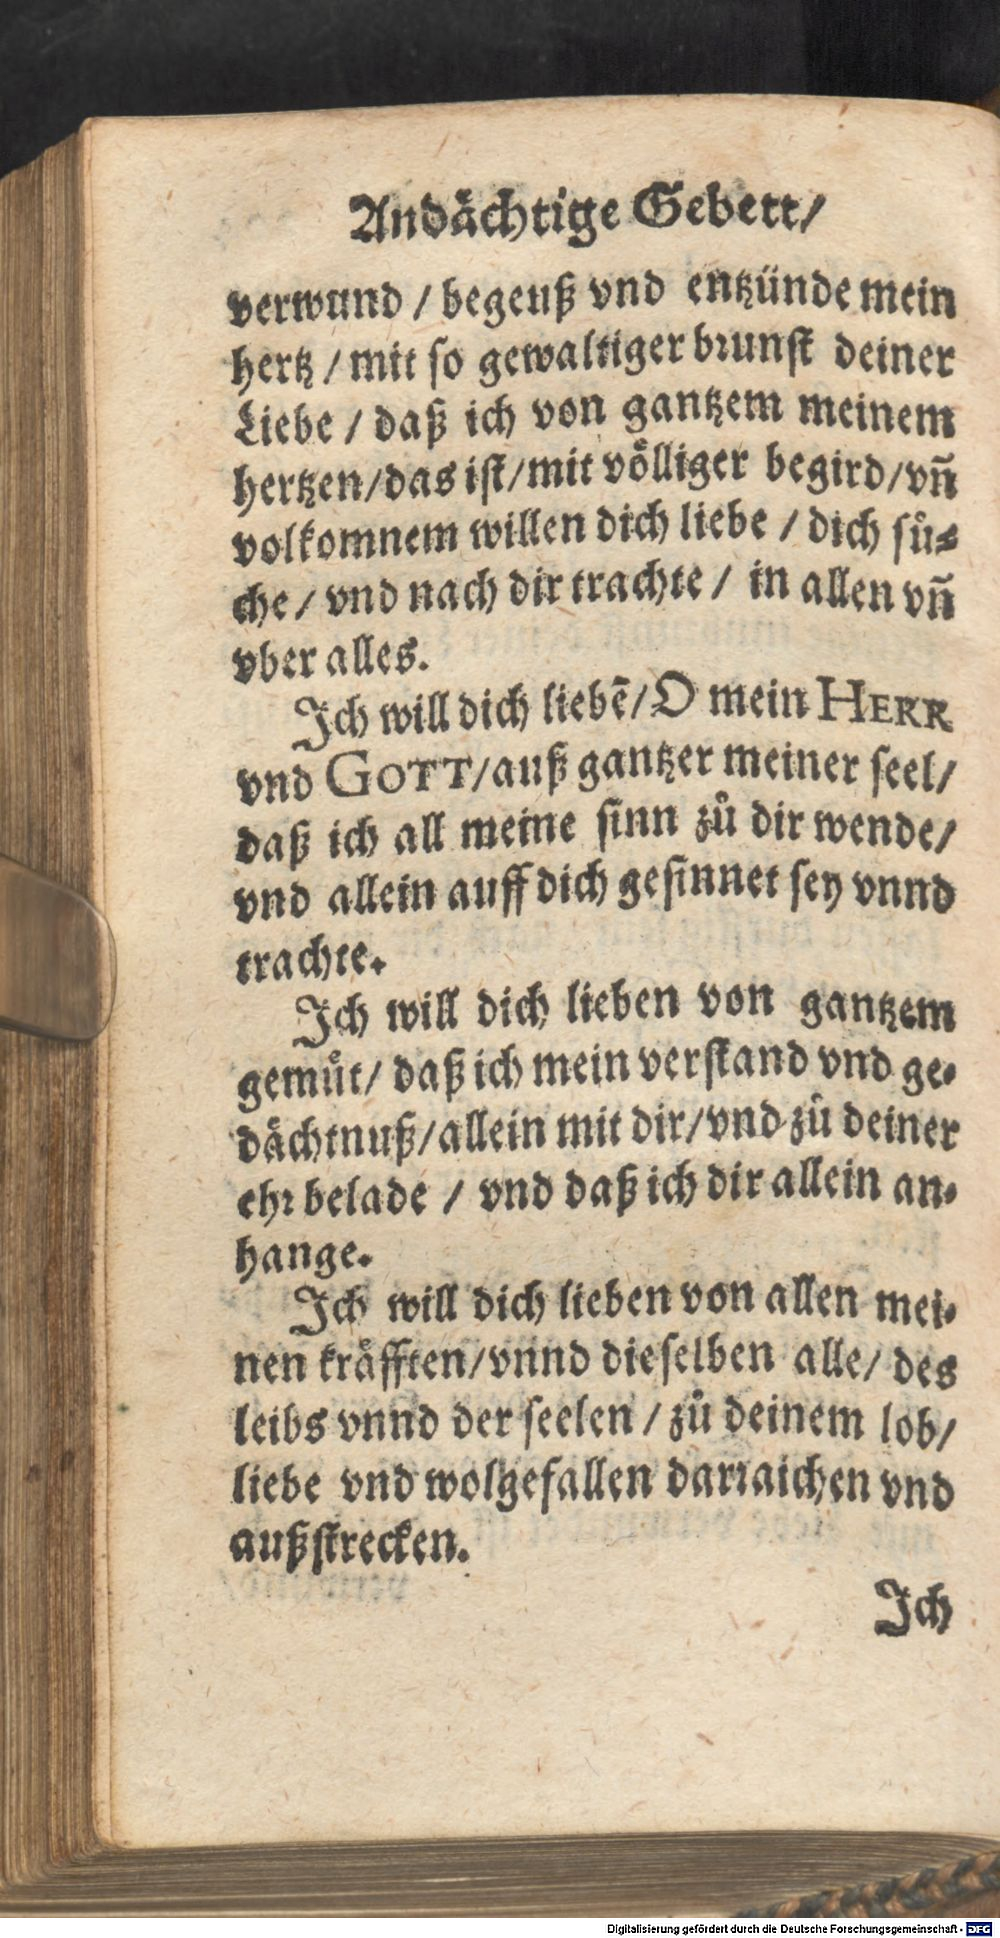 Andächtige Gebett/
verwund / begeuß vnd entzünde mein
hertz / mit so gewaltiger brunst deiner
Liebe / daß ich von gantzem meinem
hertzen/das ist/mit völliger begird/vn̄
volkomnem willen dich liebe / dich sů-
che/ vnd nach dir trachte / in allen vn̄
vber alles.
Ich will dich liebē/O mein HERR
vnd GOTT/auß gantzer meiner seel/
daß ich all meine sinn zů dir wende/
vnd allein auff dich gesinnet sey vnnd
trachte.
Ich will dich lieben von gantzem
gemůt/ daß ich mein verstand vnd ge-
dächtnuß/allein mit dir/vnd zů deiner
ehr belade / vnd daß ich dir allein an-
hange.
Ich will dich lieben von allen mei-
nen kräfften/vnnd dieselben alle/ des
leibs vnnd der seelen / zů deinem lob/
liebe vnd wolgefallen darraichen vnd
außstrecken.
Ich
Digitalisierung gefördert durch die Deutsche Forschungsgemeinschaft - DFG